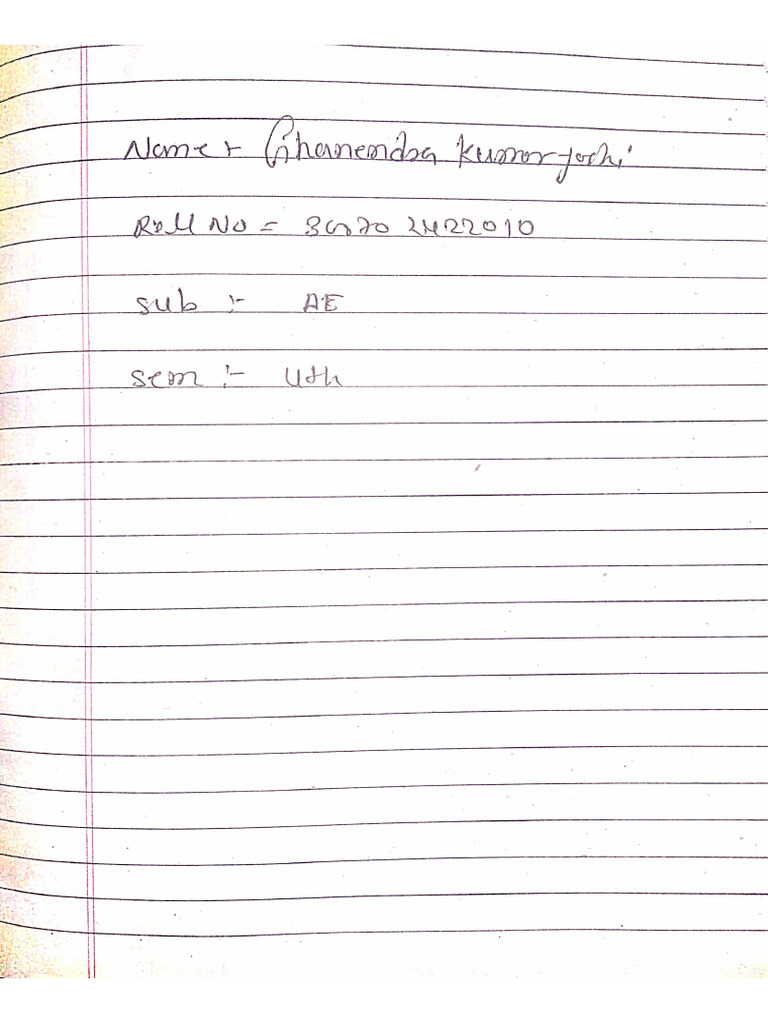 Name :- Ghanendra Kumar Joshi
Roll No = 300702422010
Sub :- AE
Sem :- 4th